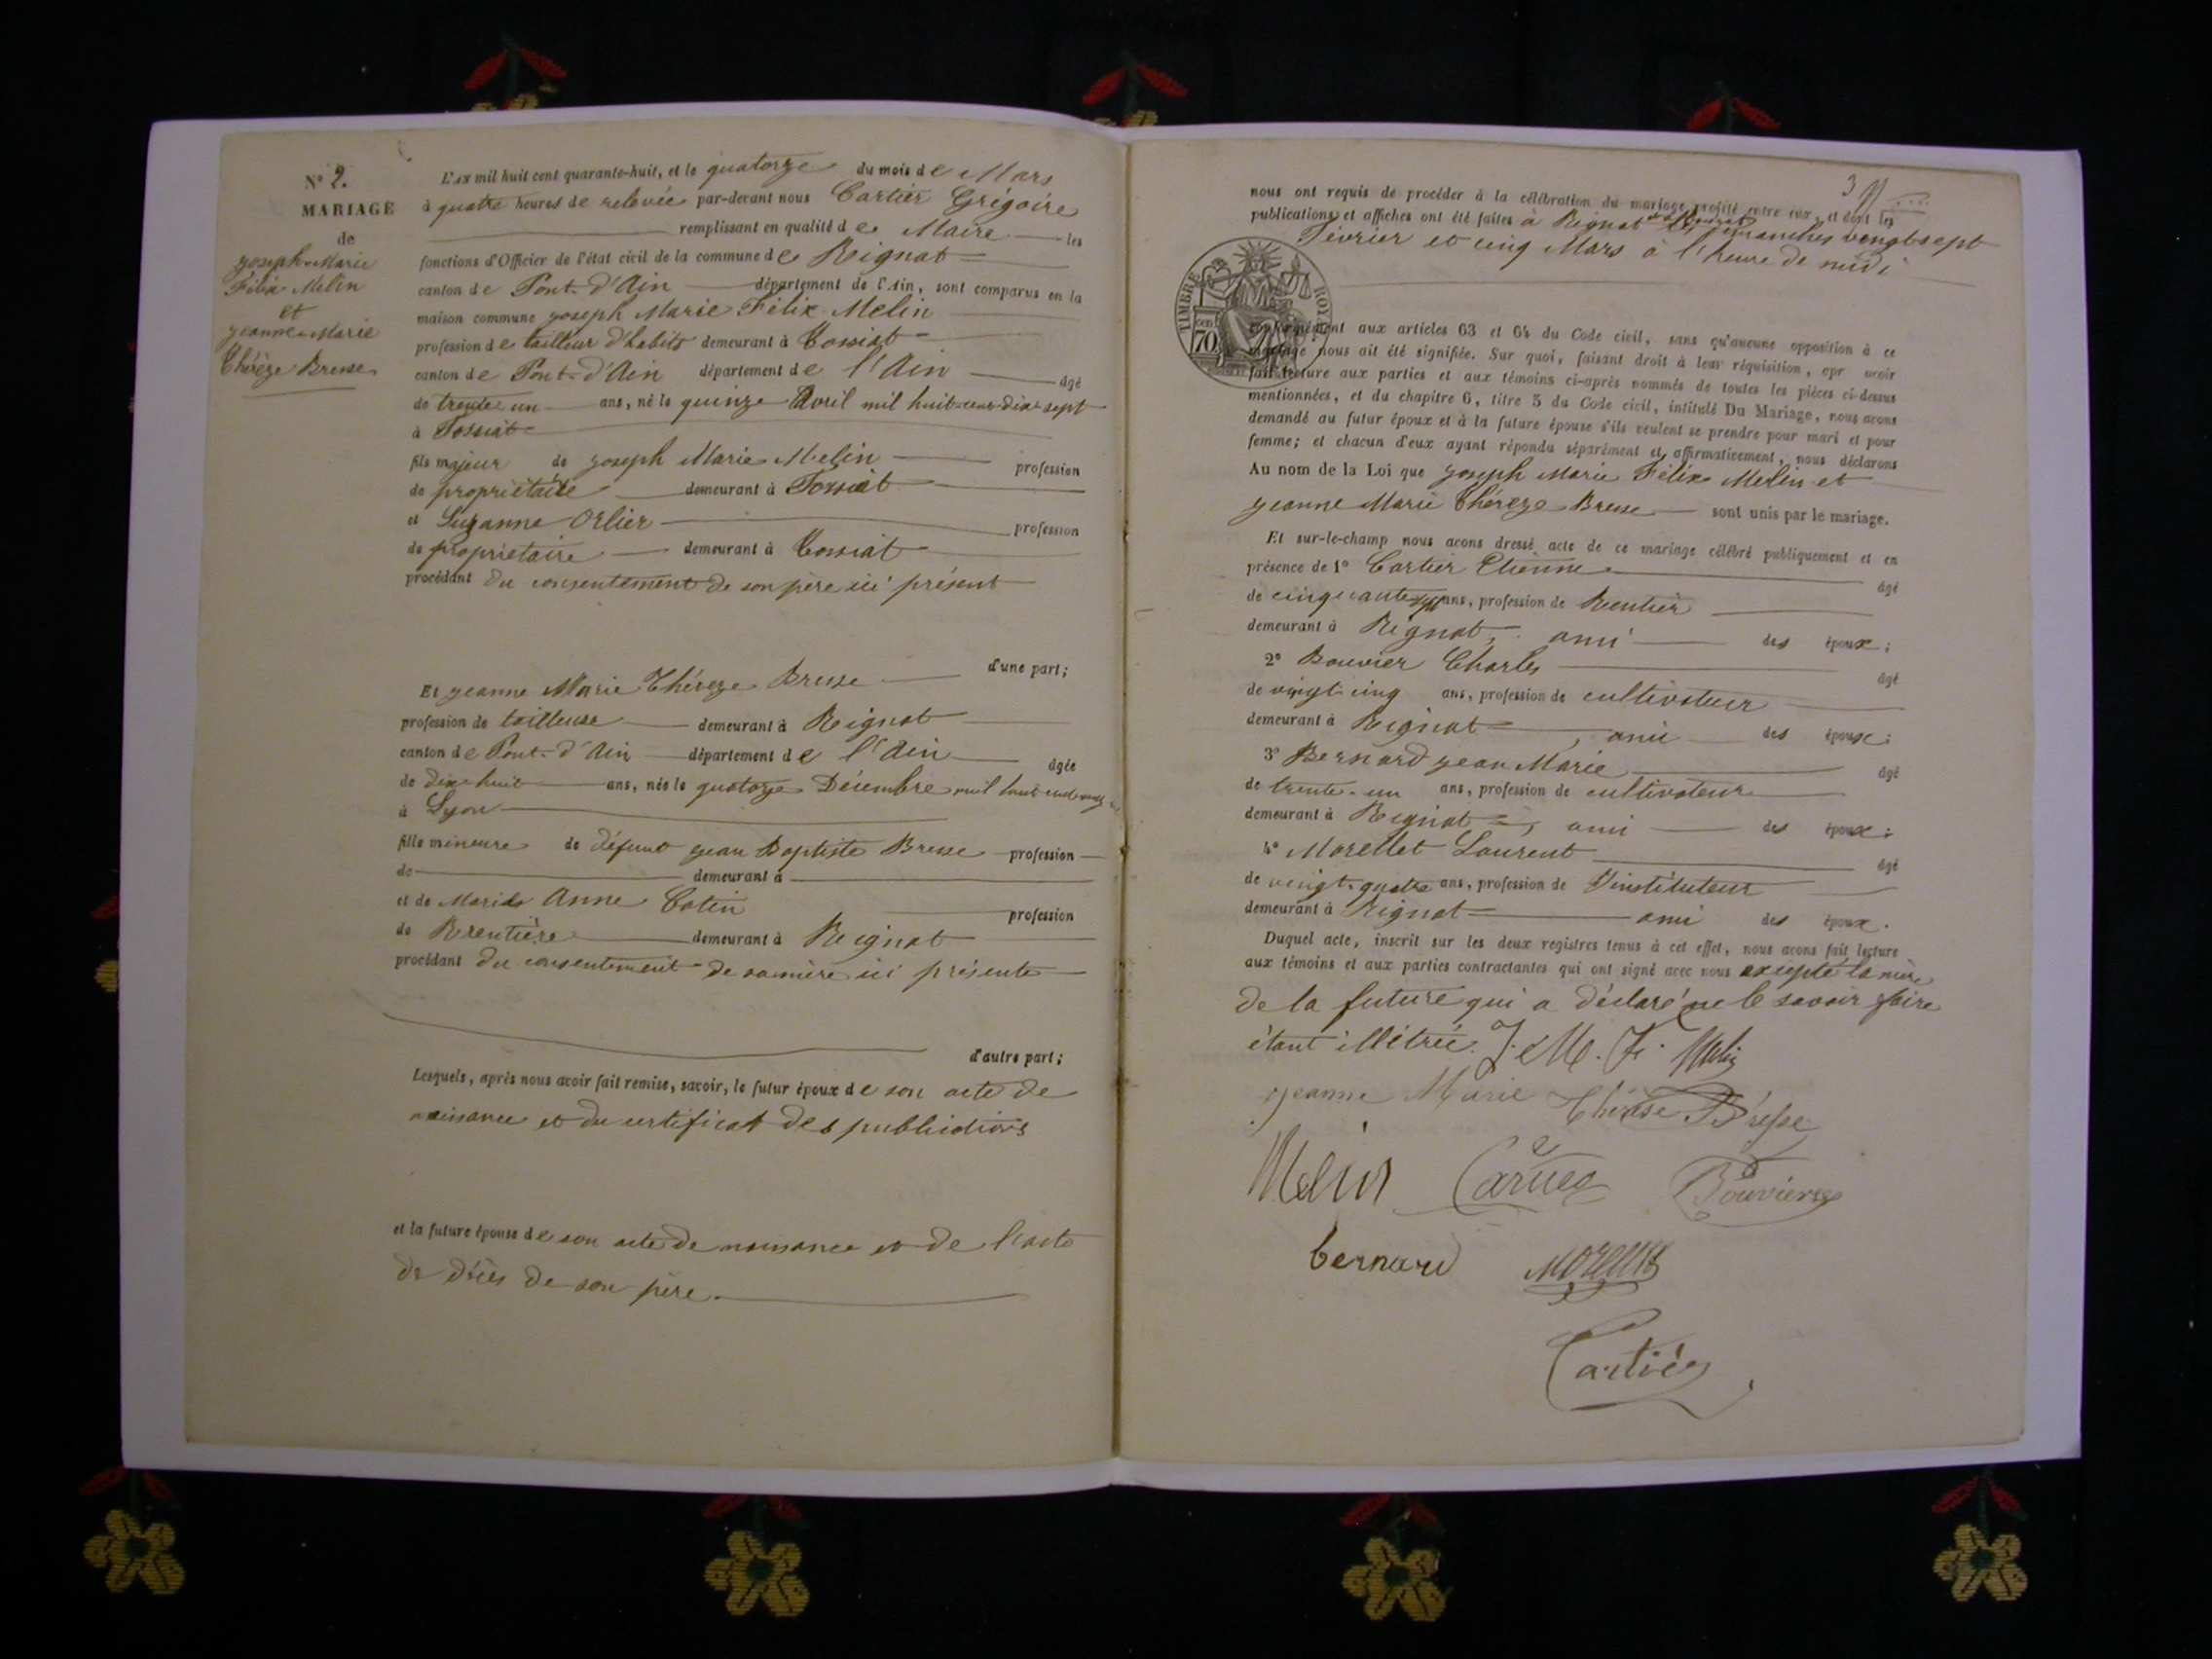 N° 2.
MARIAGE
de
Joseph Marie
Félix Melin
et
Jeanne Marie
Thérèze Bresse
L'AN mil huit cent quarante-huit, et le quatorze du mois de Mars
à quatre heures de relevée par-devant nous Cartier Grégoire
remplissant en qualité de Maire les
fonctions d'Officier de l'état civil de la commune de Rignat
canton de Pont-d'Ain département de l'Ain, sont comparus en la
maison commune Joseph Marie Félix Melin
profession de tailleur d'habits demeurant à Tossiat
canton de Pont-d'Ain département de l'Ain âgé
de trente un ans, né le quinze Avril mil huit cent dix sept
à Tossiat
fils majeur de Joseph Marie Melin profession
de propriétaire demeurant à Tossiat
et Suzanne Orlier profession
de propriétaire demeurant à Tossiat
procédant du consentement de son père ici présent
d'une part;
Et Jeanne Marie Thérèze Bresse
profession de tailleuse demeurant à Rignat
canton de Pont-d'Ain département de l'Ain âgée
de dix-huit ans, née le quatorze Décembre mil huit cent vingt
à Lyon
fille mineure de défunt Jean Baptiste Bresse profession
de demeurant à
et de Marie Anne Cotin profession
de Rentière demeurant à Rignat
procédant du consentement de sa mère ici présente
d'autre part;
Lesquels, après nous avoir fait remise, savoir, le futur époux de son acte de
naissance et du certificat des publications
et la future épouse de son acte de naissance et de l'acte
de décès de son père.
3
nous ont requis de procéder à la célébration du mariage projeté entre eux, et dont les
publications et affiches ont été faites à Rignat les dimanches vingt-sept
Février et cinq Mars à l'heure de midi
TIMBRE ROYAL
70
conformément aux articles 63 et 64 du Code civil, sans qu'aucune opposition à ce
mariage nous ait été signifiée. Sur quoi, faisant droit à leur réquisition, apr avoir
fait lecture aux parties et aux témoins ci-après nommés de toutes les pièces ci-dessus
mentionnées, et du chapitre 6, titre 5 du Code civil, intitulé Du Mariage, nous avons
demandé au futur époux et à la future épouse s'ils veulent se prendre pour mari et pour
femme; et chacun d'eux ayant répondu séparément et affirmativement, nous déclarons
Au nom de la Loi que Joseph Marie Félix Melin et
Jeanne Marie Thérèze Bresse sont unis par le mariage.
Et sur-le-champ nous avons dressé acte de ce mariage célébré publiquement et en
présence de 1° Cartier Etienne âgé
de cinquante sept ans, profession de Rentier
demeurant à Rignat, ami des époux;
2° Bouvier Charles âgé
de vingt cinq ans, profession de cultivateur
demeurant à Rignat, ami des époux;
3° Bernard Jean Marie âgé
de trente-un ans, profession de cultivateur
demeurant à Rignat, ami des époux;
4° Morellet Laurent âgé
de vingt-quatre ans, profession de d'instituteur
demeurant à Rignat ami des époux.
Duquel acte, inscrit sur les deux registres tenus à cet effet, nous avons fait lecture
aux témoins et aux parties contractantes qui ont signé avec nous excepté la mère
de la future qui a déclaré ne le savoir faire
étant illétrée. J. M. F. Melin
Jeanne Marie Thérèse Bresse
Melin Bouvier
bernard
Cartier